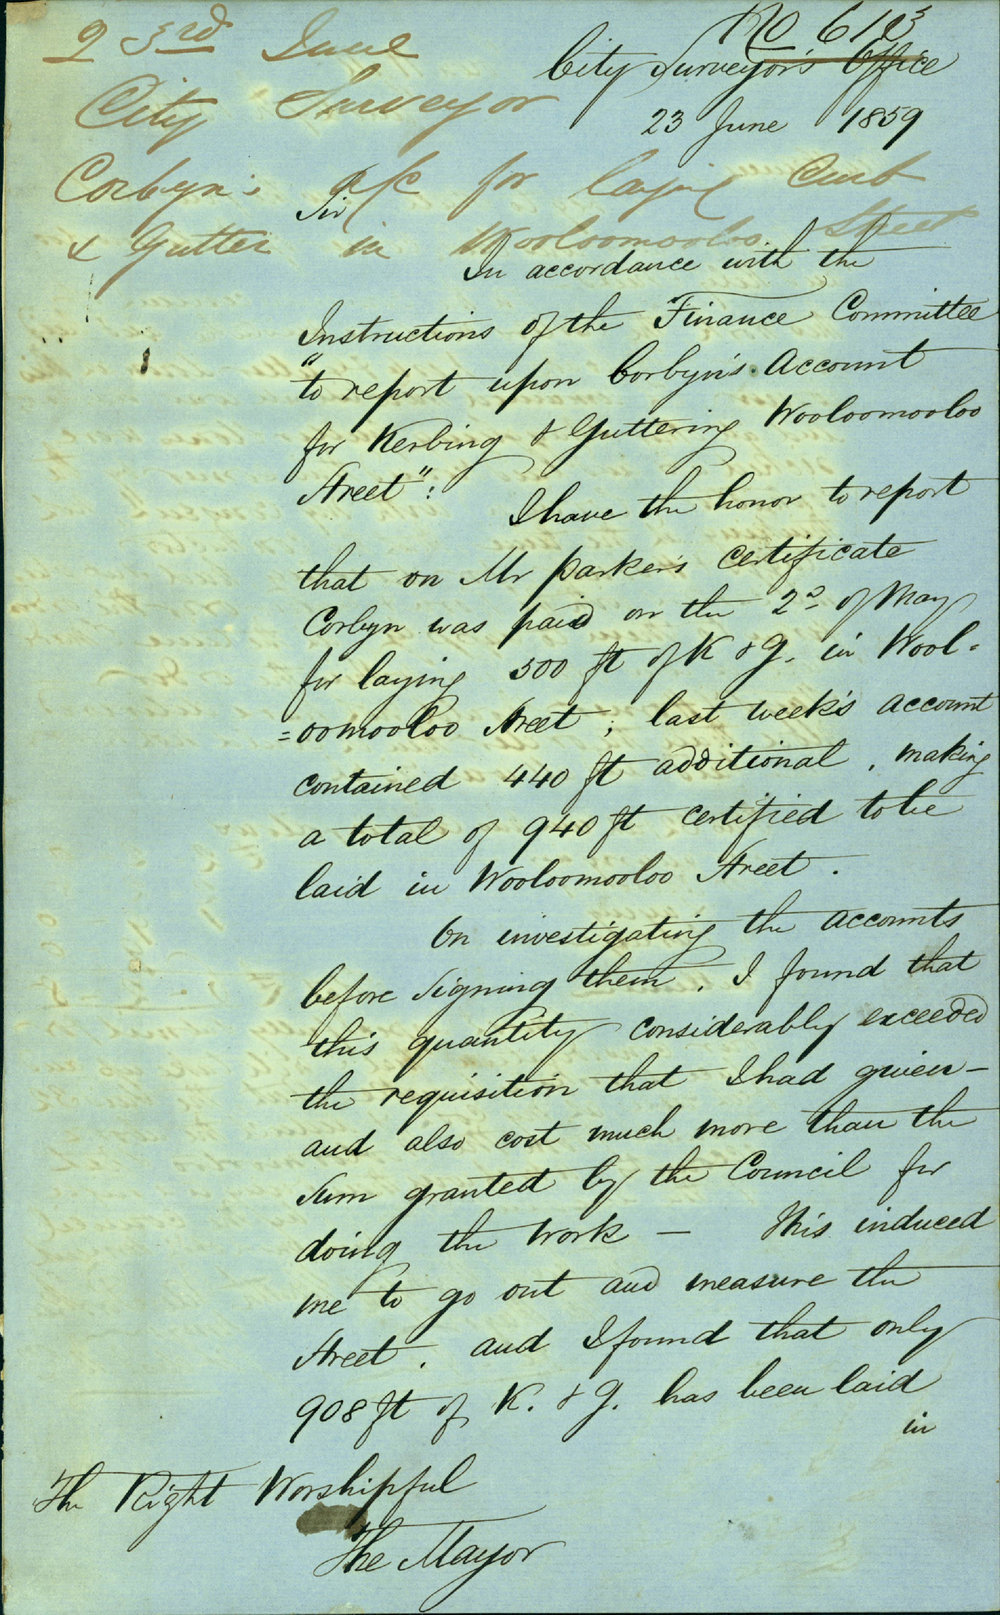 No 610³
23rd June
City Surveyor
Corbyn's a/c for laying Curb
& Gutter in Wooloomooloo Street
City Surveyor's Office
23 June 1859
Sir
In accordance with the
Instructions of the Finance Committee
"to report upon Corbyn's Account
for Kerbing & Guttering Wooloomooloo
Street":
I have the honor to report
that on Mr Parker's certificate
Corbyn was paid on the 2d of May
for laying 500 ft of K & G. in Wool=
=oomooloo Street; last week's account
contained 440 ft additional, making
a total of 940 ft certified to be
laid in Wooloomooloo Street.
On investigating the accounts
before signing them, I found that
this quantity considerably exceeded
the requisition that I had given –
and also cost much more than the
Sum granted by the Council for
doing the Work – This induced
me to go out and measure the
Street, and I found that only
908 ft of K. & G. has been laid
in
The Right Worshipful
The Mayor